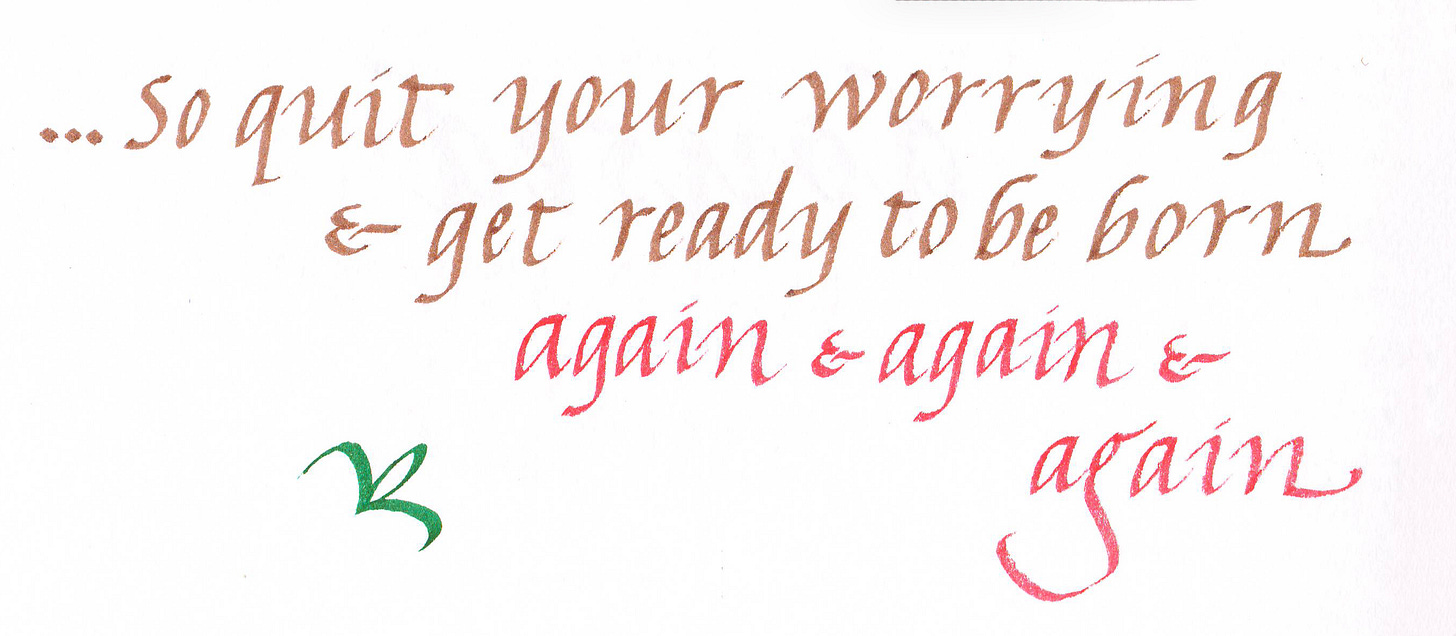 ...So quit your worrying
& get ready to be born
again & again &
again